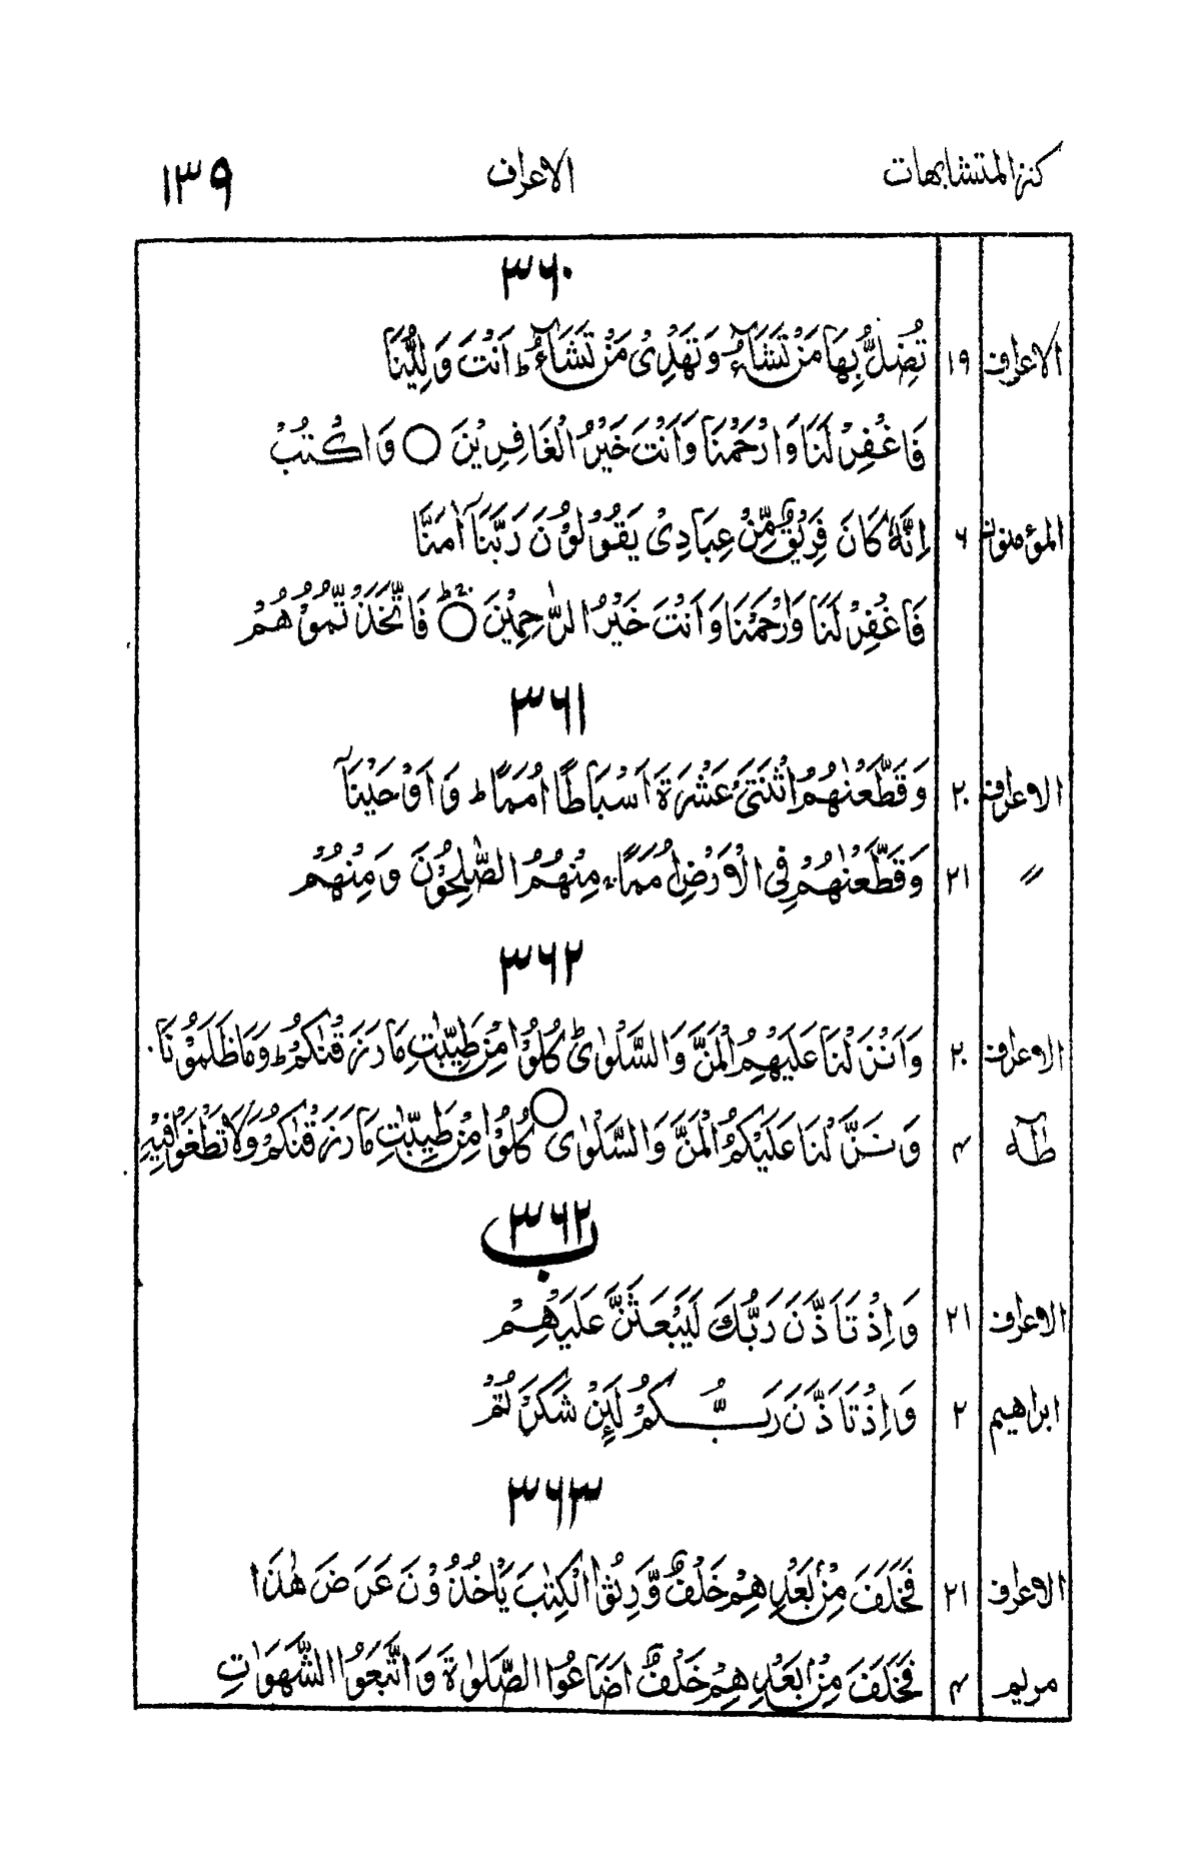 كنز المتشابهات الاعراف ١٣٩
٣٦٠
الاعراف ١٩ تُضِلُّ بِهَا مَنْ تَشَآءُ وَ تَهْدِىْ مَنْ تَشَآءُ ؕ اَنْتَ وَلِيُّنَا
فَاغْفِرْ لَنَا وَارْحَمْنَا وَاَنْتَ خَيْرُ الْغَافِرِيْنَ ○ وَاكْتُبْ
المؤمنون ٦ اِنَّهٗ كَانَ فَرِيْقٌ مِّنْ عِبَادِىْ يَقُوْلُوْنَ رَبَّنَآ اٰمَنَّا
فَاغْفِرْ لَنَا وَارْحَمْنَا وَاَنْتَ خَيْرُ الرّٰحِمِيْنَ ○ فَاتَّخَذْتُمُوْهُمْ
٣٦١
الاعراف ٢٠ وَقَطَّعْنٰهُمُ اثْنَتَىْ عَشْرَةَ اَسْبَاطًا اُمَمًا ؕ وَ اَوْحَيْنَآ
〃 ٢١ وَقَطَّعْنٰهُمْ فِى الْاَرْضِ اُمَمًا ۚ مِنْهُمُ الصّٰلِحُوْنَ وَمِنْهُمْ
٣٦٢
الاعراف ٢٠ وَاَنْزَلْنَا عَلَيْهِمُ الْمَنَّ وَالسَّلْوٰى ؕ كُلُوْا مِنْ طَيِّبٰتِ مَا رَزَقْنٰكُمْ ؕ وَمَا ظَلَمُوْنَا
طٰهٰ ٤ وَنَزَّلْنَا عَلَيْكُمُ الْمَنَّ وَالسَّلْوٰى ○ كُلُوْا مِنْ طَيِّبٰتِ مَا رَزَقْنٰكُمْ وَلَا تَطْغَوْا فِيْهِ
٣٦٢ ب
الاعراف ٢١ وَاِذْ تَاَذَّنَ رَبُّكَ لَيَبْعَثَنَّ عَلَيْهِمْ
ابراهيم ٢ وَاِذْ تَاَذَّنَ رَبُّكُمْ لَئِنْ شَكَرْتُمْ
٣٦٣
الاعراف ٢١ فَخَلَفَ مِنْۢ بَعْدِهِمْ خَلْفٌ وَّرِثُوا الْكِتٰبَ يَاْخُذُوْنَ عَرَضَ هٰذَا
مريم ٤ فَخَلَفَ مِنْۢ بَعْدِهِمْ خَلْفٌ اَضَاعُوا الصَّلٰوةَ وَاتَّبَعُوا الشَّهَوٰتِ